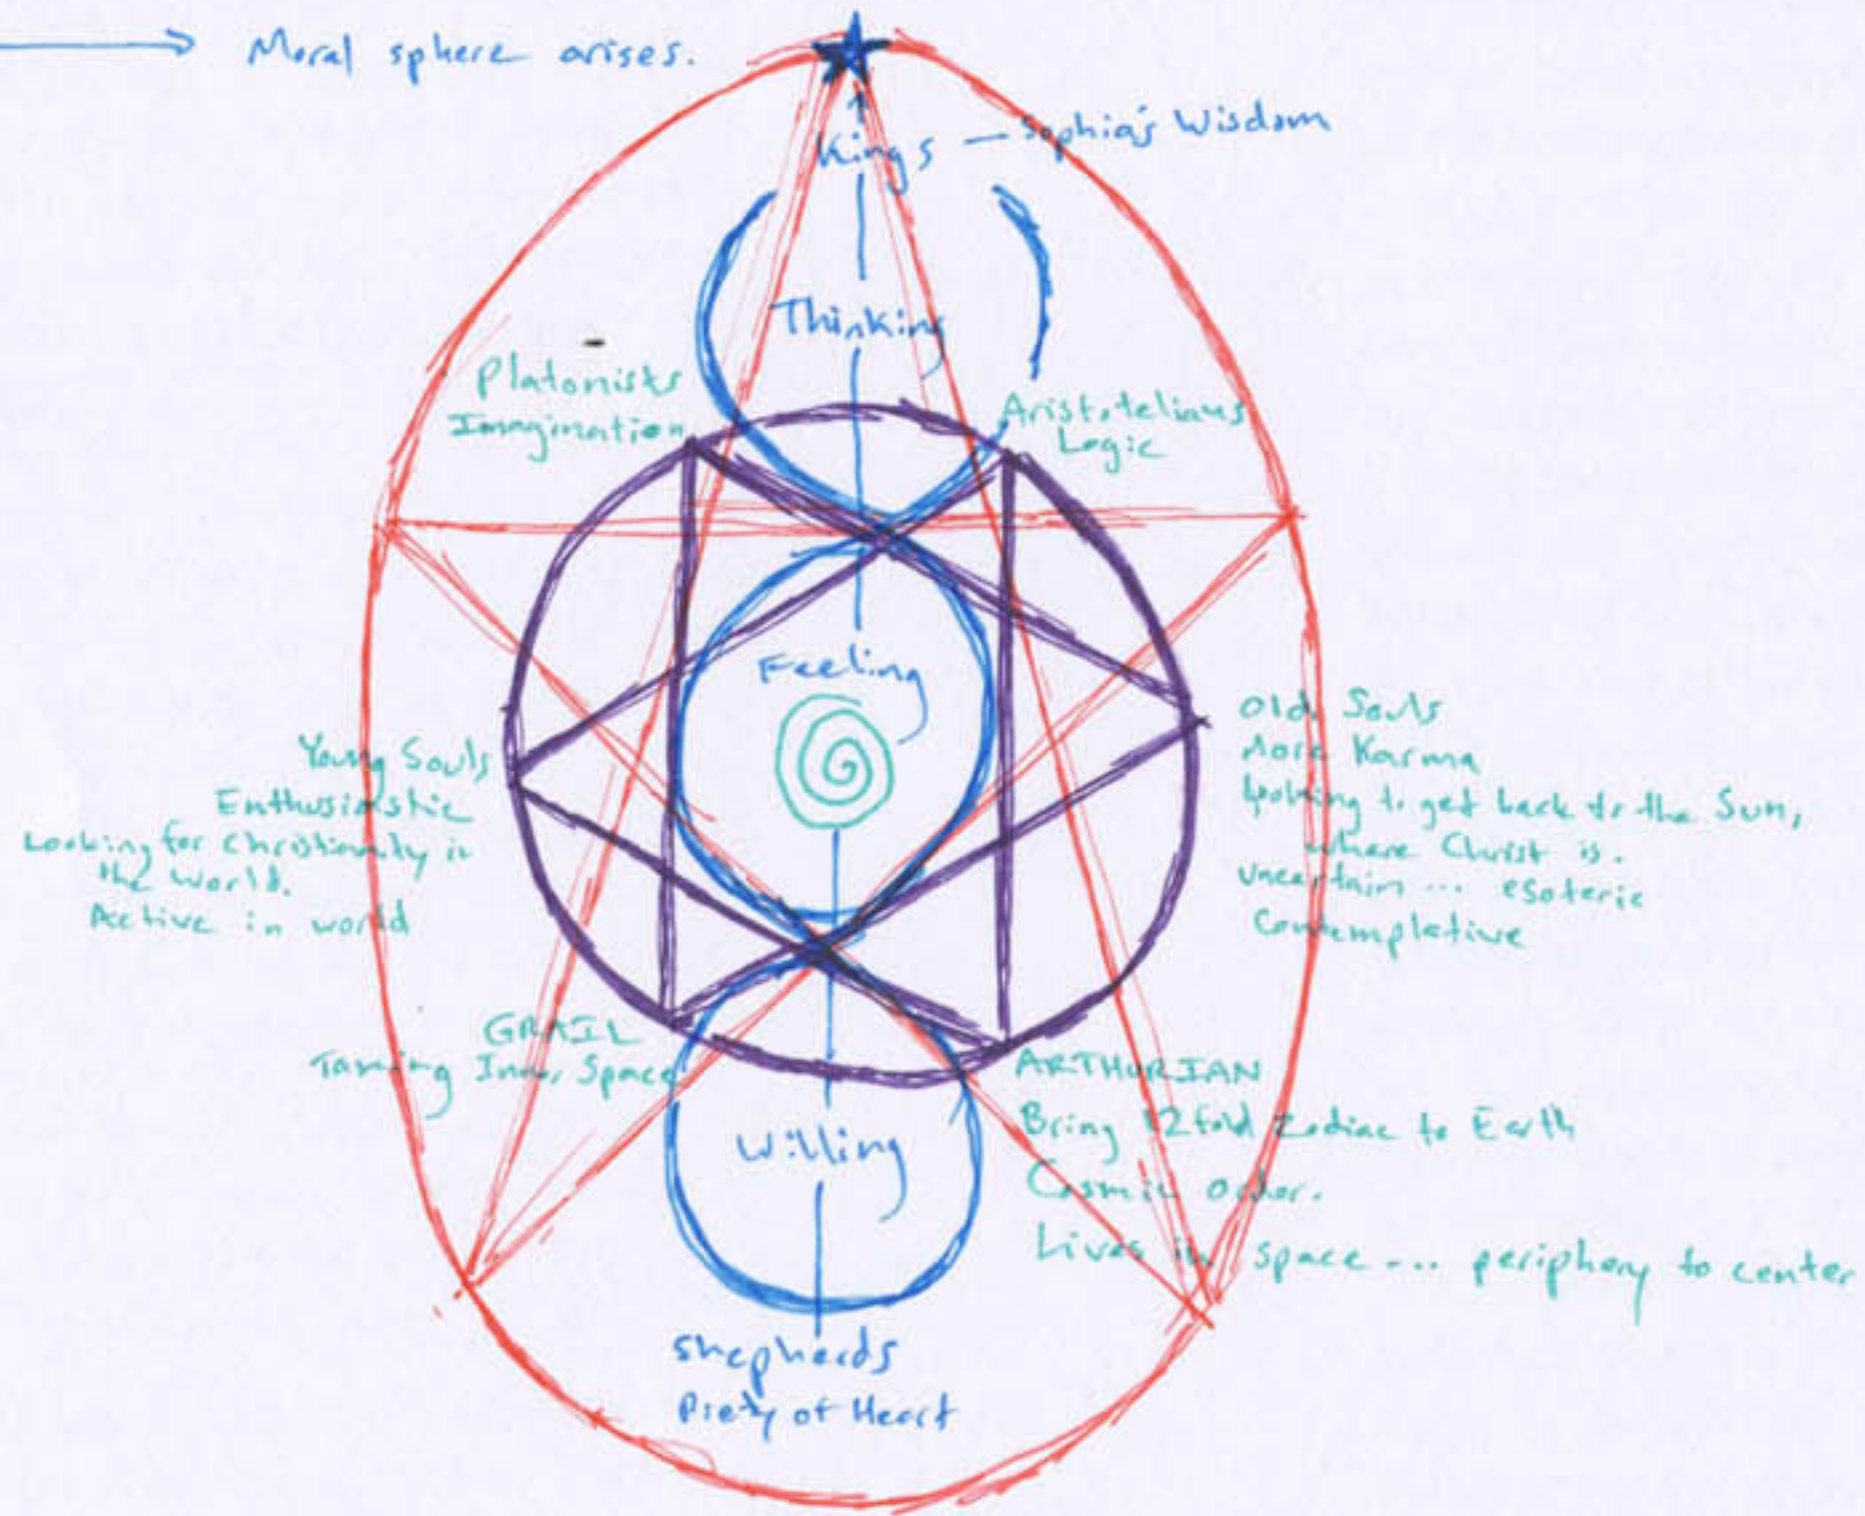 Moral sphere arises.
Kings — Sophia's Wisdom
Thinking
Platonists
Imagination
Aristotelians
Logic
Feeling
Young Souls
Enthusiastic
Looking for Christianity in
the World.
Active in world
Old Souls
More Karma
to get back to the Sun,
where Christ is.
uncertain ... esoteric
Contemplative
GRAIL
Taming Inner Space
ARTHURIAN
Bring 12fold Zodiac to Earth
Cosmic order.
Lives in space .... periphery to center
Willing
Shepherds
Piety of Heart